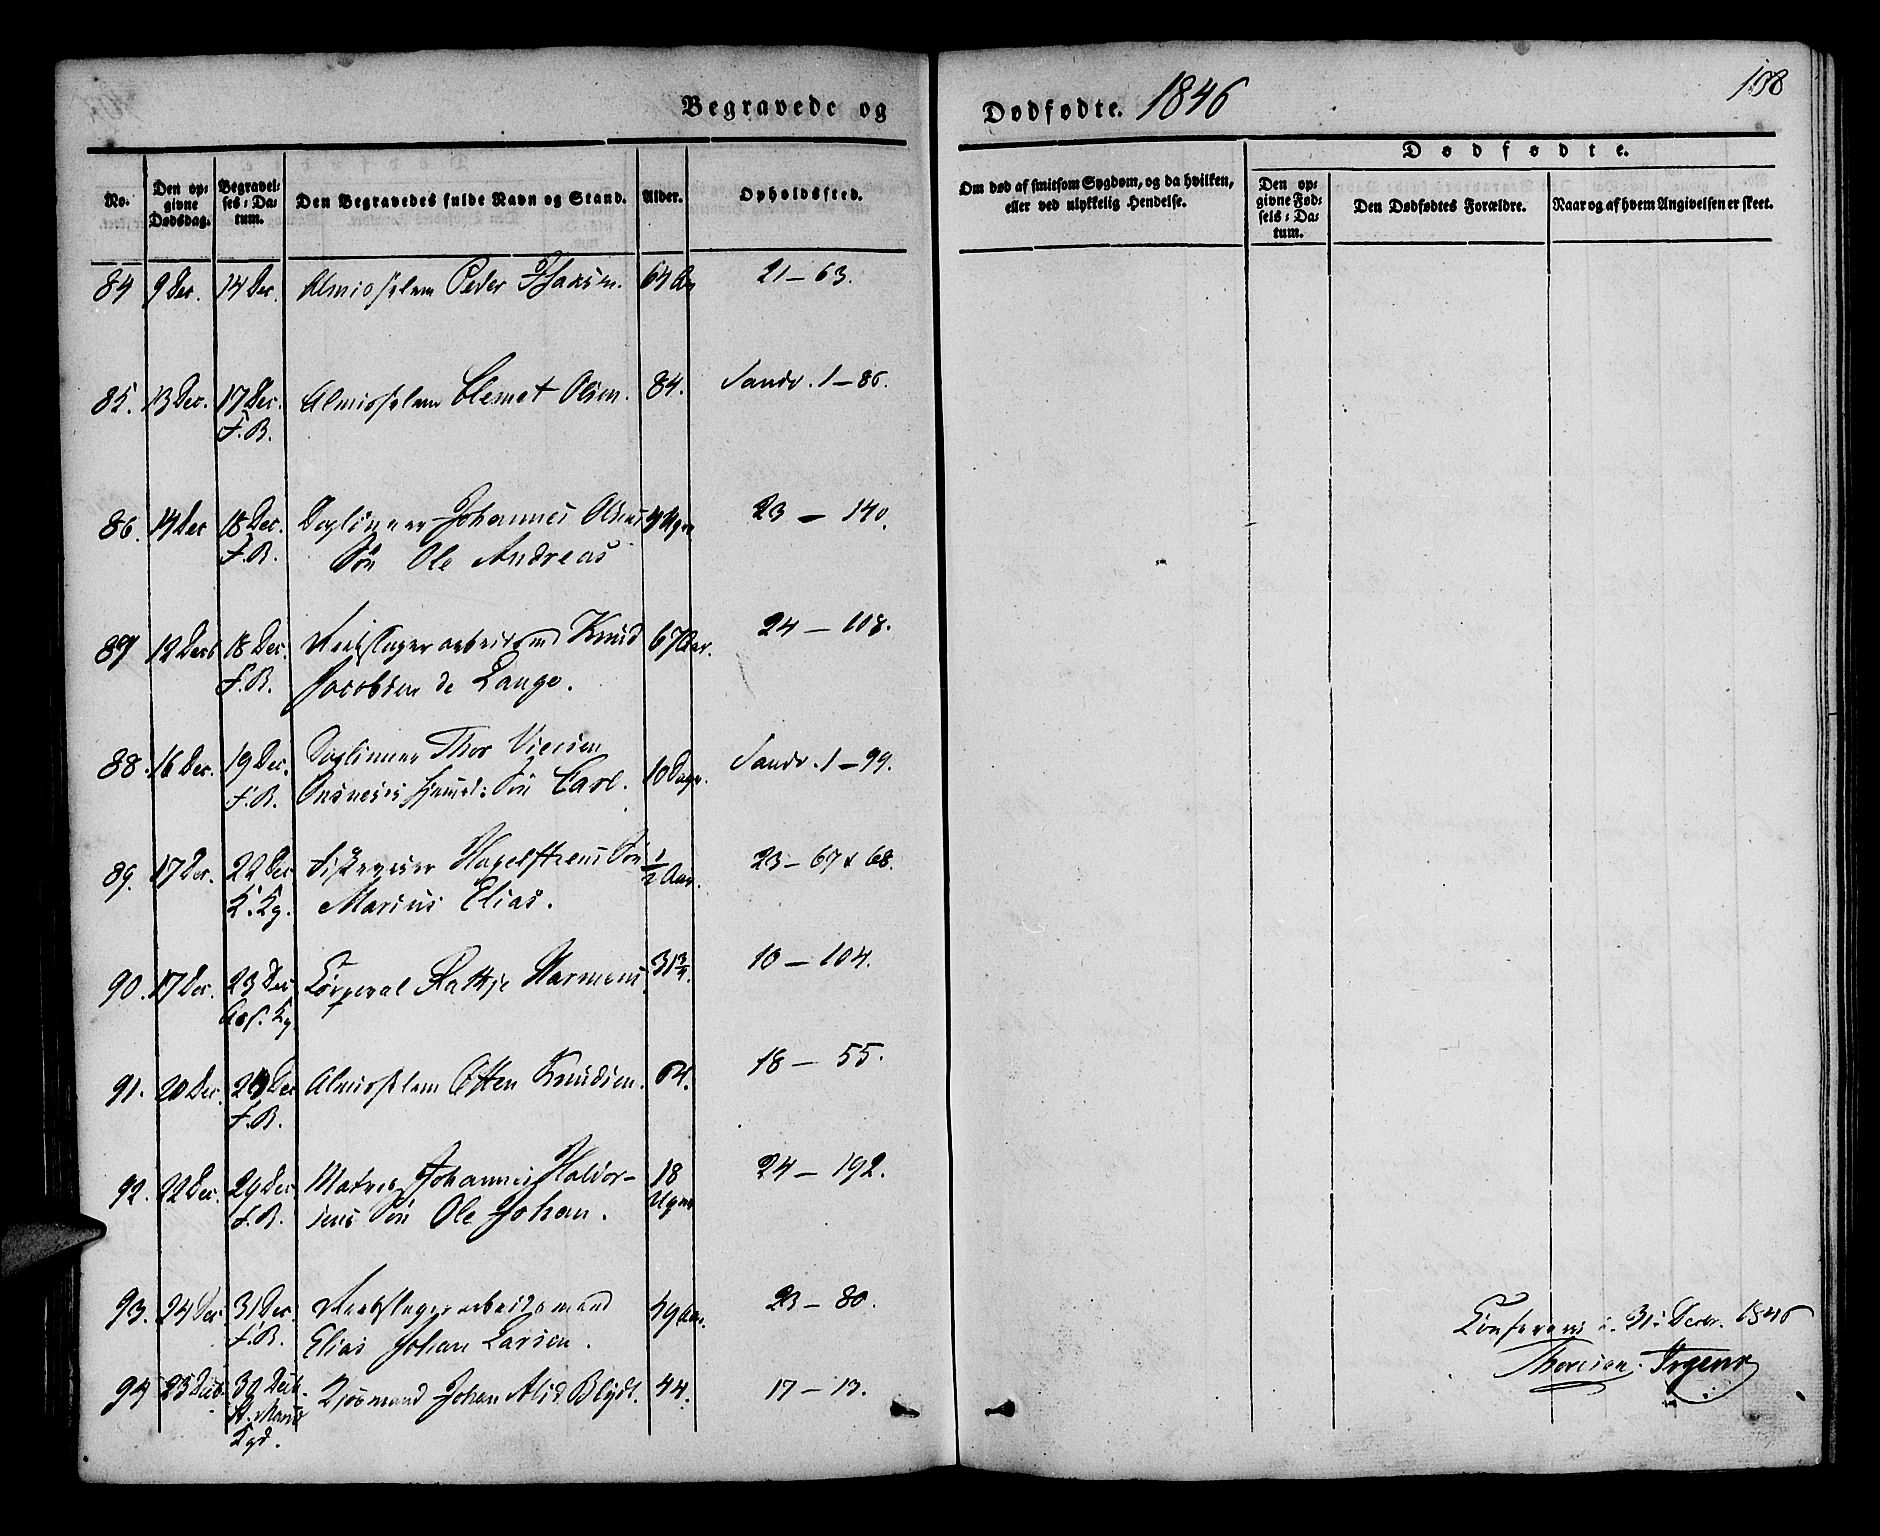 Begravede og
Dødfødte. 1846
108
No.
Den op-
givne
Dødsdag.
Begravel-
ses-Da-
tum.
Den Begravedes fulde Navn og Stand.
Alder.
Opholdssted.
Om død af smitsom Sygdom, og da hvilken,
eller ved ulykkelig Hendelse.
Dødfødte.
Den op-
givne Fød-
sels-Da-
tum.
Den Dødfødtes Forældre.
Naar og af hvem Angivelsen er skeet.
84 9 Dec. 14 Dec. Almisselem Peder 64 Aar 21 – 63.
85. 13 Dec. 17 Dec. Almisselem Clemet Olsen. 84. Sandv. 1 – 86.
F.B.
86. 14 Dec 18 Dec. Daglønner Johannes Olsens 4 Uger 23 – 140.
F.B. Søn Ole Andreas
87 12 Decb 18 Dec. Reebslagerarbeidsmd Knud 67 Aar. 24 – 108.
F.B. Jacobsen de Lange.
88. 16 Dec. 19 Dec. Daglønner Thor 10 Dage. Sandv. 1 – 99.
F.B. Søn Carl.
89. 17 Dec. 22 Dec Hagelsteens Søn ½ Aar. 23 – 67 & 68.
K. Kg. Marius Elias.
90. 17 Dec. 23 Dec Corporal Rattje Harmens 31¾. 10 – 104.
Kg
91. 20 Dec. 26 Dec Almisselem Otten Knudsen. 64. 18 – 55.
F.B.
92. 22 Dec. 29 Dec Matros Johannes Haldor- 18 Uger 24 – 192.
F.B. sens Søn Ole Johan.
93. 24 Dec 31 Dec. Reebslagerarbeidsmand 49 Aar. 23 – 80.
F.B. Elias Johan Larsen.
94 25 Decb 30 Decb. Johan Alid Blydt. 44. 17 – 13.
St. Maria
Kgd.
Confereret d. 31. Decbr. 1846
Thoresen. Irgens